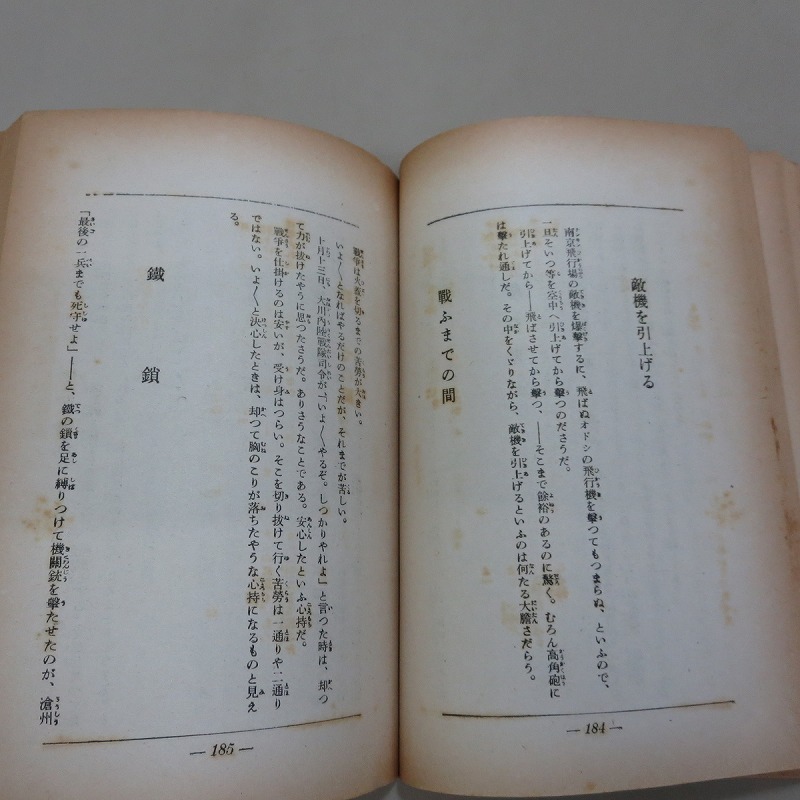 敵機を引上げる
南京飛行場の敵機を爆撃するに、飛ばぬオドシの飛行機を撃つてもつまらぬ、といふので、
一旦そいつ等を空中へ引上げてから撃つのださうだ。
引上げてから——飛ばさせてから撃つ、——そこまで餘裕のあるのに驚く。むろん高角砲に
は撃たれ通しだ。その中をくゞりながら、敵機を引上げるといふのは何たる大膽さだらう。
戰ふまでの間
— 184 —
戰爭は火蓋を切るまでの苦勞が大きい。
いよ〱となればやるだけのことだが、それまでが苦しい。
十月十三日、大川内陸戰隊司令が「いよ〱やるぞ。しつかりやれよ」と言つた時は、却つ
て力が拔けたやうに思つたさうだ。ありさうなことである。安心したといふ心持だ。
戰爭を仕掛けるのは安いが、受け身はつらい。そこを切り拔けて行く苦勞は一通りや二通り
ではない。いよ〱と決心したときは、却つて胸のこりが落ちたやうな心持になるものと見え
る。
鐵鎖
「最後の一兵までも死守せよ」——と、鐵の鎖を足に縛りつけて機關銃を擊たせたのが、滄州
— 185 —